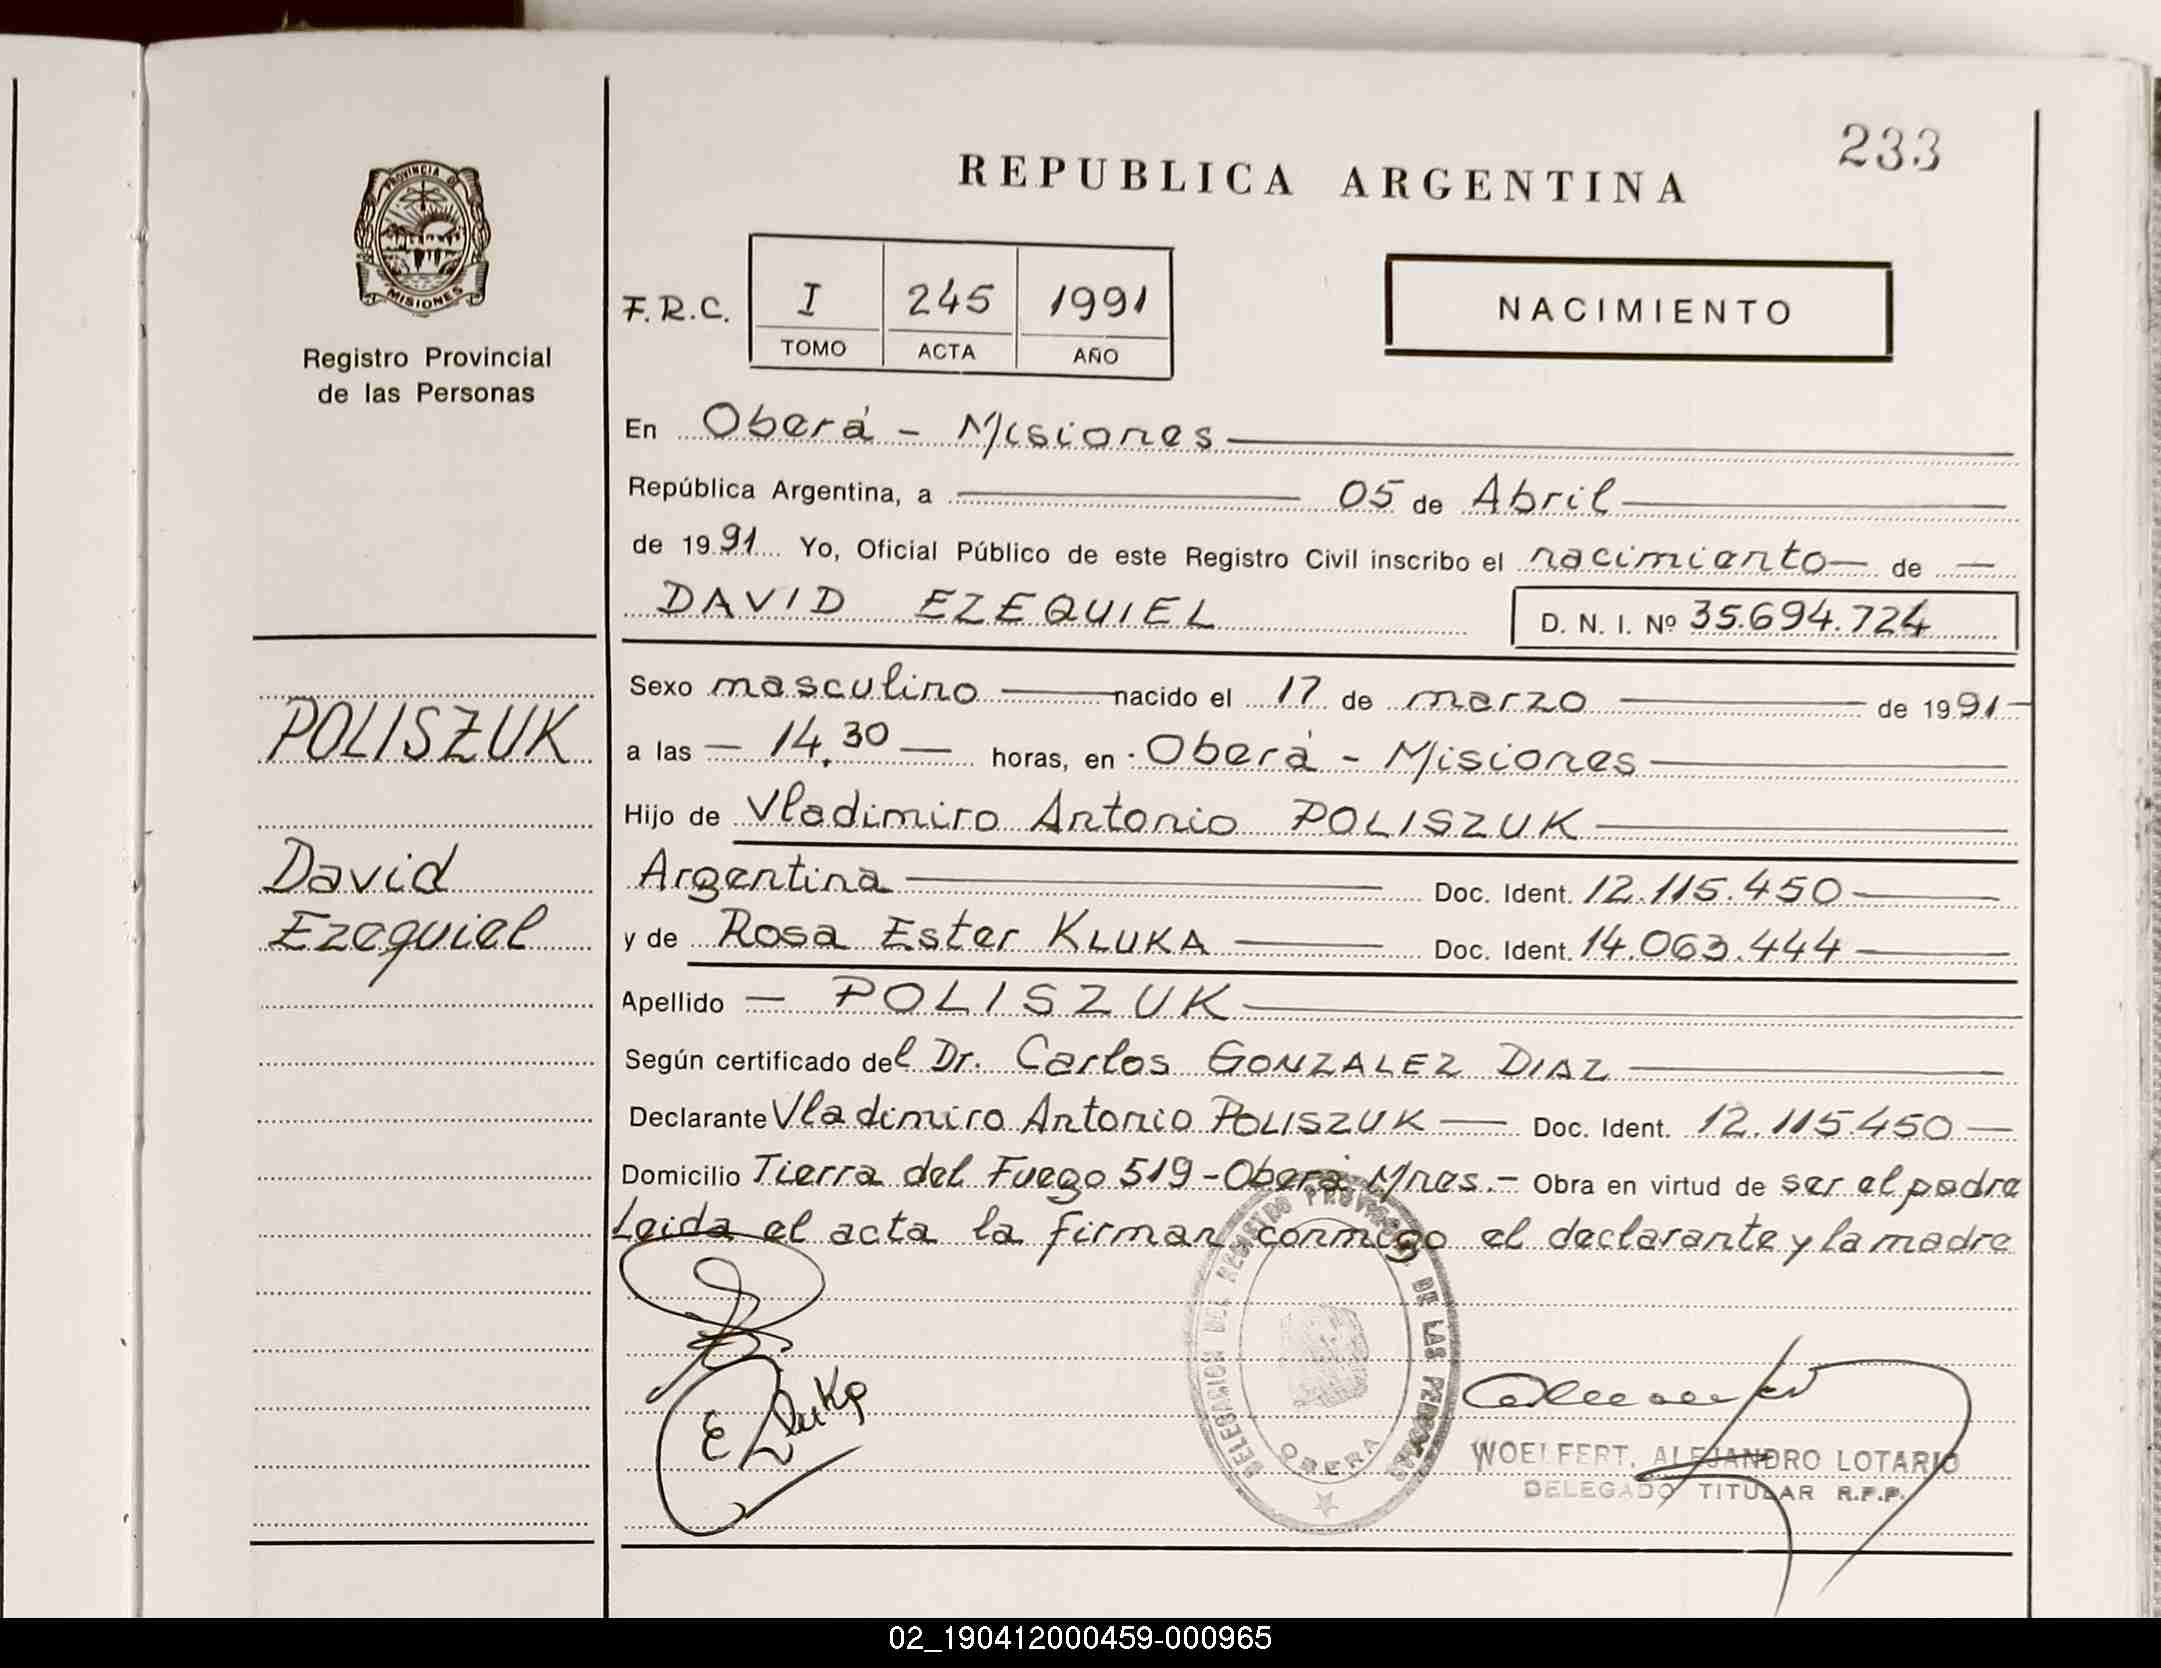 233
REPUBLICA ARGENTINA
PROVINCIA DE
MISIONES
Registro Provincial
de las Personas
F.R.C. I 245 1991
TOMO ACTA AÑO
NACIMIENTO
En Oberá - Misiones
República Argentina, a 05 de Abril
de 1991 Yo, Oficial Público de este Registro Civil inscribo el nacimiento de
DAVID EZEQUIEL D. N. I. Nº 35.694.724
POLISZUK
David
Ezequiel
Sexo masculino nacido el 17 de marzo de 1991
a las 14.30 horas, en Oberá - Misiones
Hijo de Vladimiro Antonio POLISZUK
Argentina Doc. Ident. 12.115.450
y de Rosa Ester KLUKA Doc. Ident. 14.063.444
Apellido POLISZUK
Según certificado del Dr. Carlos GONZALEZ DIAZ
Declarante Vladimiro Antonio POLISZUK Doc. Ident. 12.115.450
Domicilio Tierra del Fuego 519 - Oberá Mnes.- Obra en virtud de ser el padre
Leida el acta la firman conmigo el declarante y la madre
DELEGACION DEL REGISTRO PROVINCIAL DE LAS PERSONAS
OBERA
WOELFERT, ALEJANDRO LOTARIO
DELEGADO TITULAR R.P.P.
02_190412000459-000965